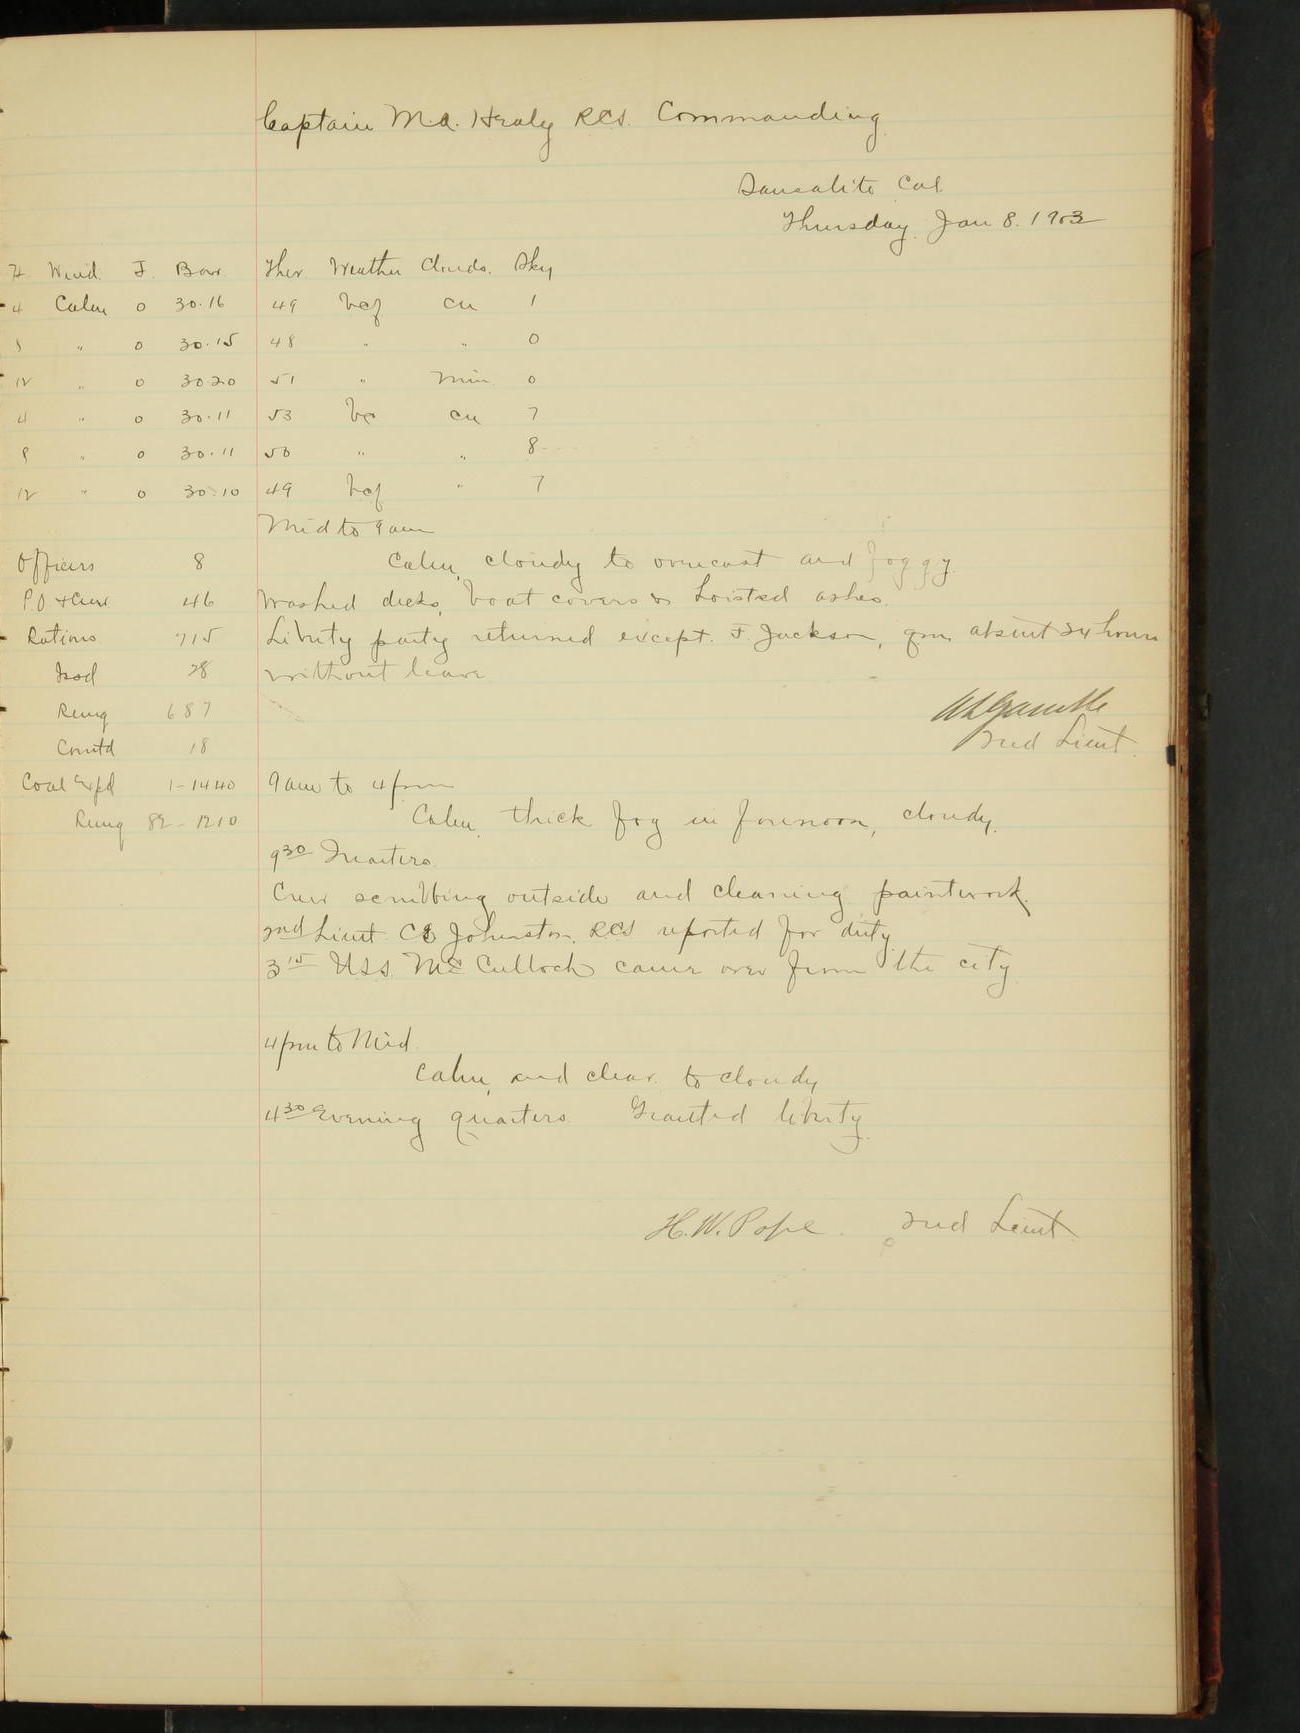 Captain M.A. Healy RCS. Commanding
Sausalito Cal.
Thursday Jan 8. 1903
H. Wind. F. Bar. Ther Weather Clouds. Sky
4 Calm 0 30.16 49 bcf cu 1
8 " 0 30.15 48 " " 0
12 " 0 30.20 51 " nim 0
4 " 0 30.11 53 bc cu 7
8 " 0 30.11 50 " " 8
12 " 0 30.10 49 bcf " 7
Mid to 9 am
Officers 8
Calm, cloudy to overcast and foggy.
P.O & Crew 46
Washed decks, boat covers & hoisted ashes.
Rations 715
Liberty party returned except. F. Jackson, qm absent 24 hours
Issd 28
without leave
Remg 687
2nd Lieut.
Comtd 18
Coal Expd 1-1440
9 am to 4 pm
Remg 82-1210
Calm, thick fog in forenoon, cloudy.
9 30 Quarters.
Crew scrubbing outside and cleaning paintwork.
2nd Lieut. Johnston, RCS reported for duty.
3 15 USS. McCulloch came over from the city
4 pm to Mid.
Calm, and clear to cloudy
4 30 Evening quarters. Granted liberty.
H.W. Pope. 2nd Lieut.